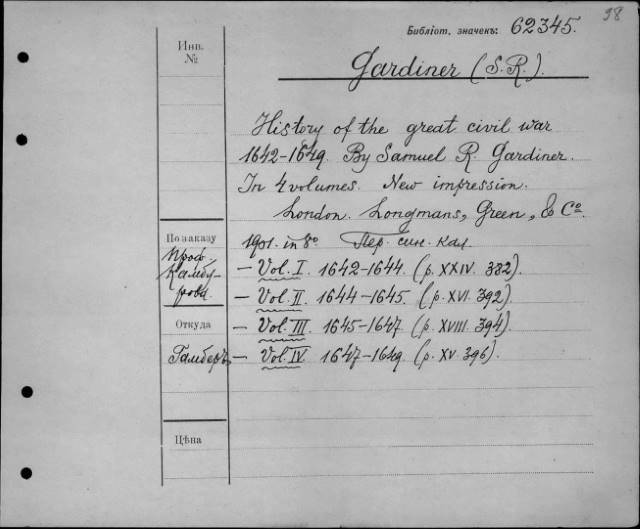 38
Библіот. значекъ: 62345.
Инв.
№
Gardiner (S.R.).
History of the great civil war
1642-1649. By Samuel R. Gardiner.
In 4 volumes. New impression.
London. Longmans, Green, & Cº.
1901. in 8º Пер. син. кал.
По заказу
Проф.
Камбурова
— Vol. I. 1642-1644. (p. XXIV. 382).
— Vol. II. 1644-1645. (p. XVI. 392).
— Vol. III. 1645-1647. (p. XVIII. 394).
— Vol. IV. 1647-1649. (p. XV. 396).
Откуда
Гамберъ
Цѣна